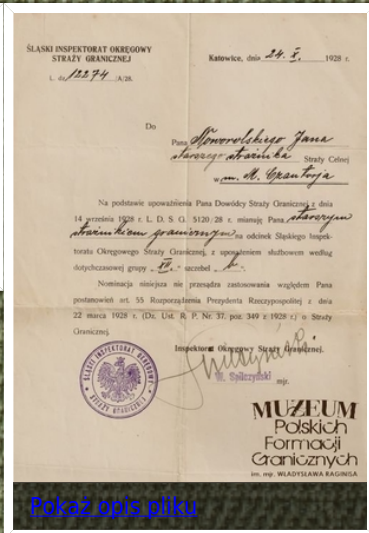 ŚLĄSKI INSPEKTORAT OKRĘGOWY
STRAŻY GRANICZNEJ
L. dz. 12274 /A/28.
Katowice, dnia 24. X. 1928 r.
Do
Pana Noworolskiego Jana
starszego strażnika Straży Celnej
w m. M. Czantorja
Na podstawie upoważnienia Pana Dowódcy Straży Granicznej z dnia
14 września 1928 r. L. D. S. G. 5120/28 r. mianuję Pana starszym
strażnikiem granicznym na odcinek Śląskiego Inspek-
toratu Okręgowego Straży Granicznej, z uposażeniem służbowem według
dotychczasowej grupy XII.- szczebel b.-
Nominacja niniejsza nie przesądza zastosowania względem Pana
postanowień art. 55 Rozporządzenia Prezydenta Rzeczypospolitej z dnia
22 marca 1928 r. (Dz. Ust. R. P. Nr. 37. poz. 349 r. 1928 r.) o Straży
Granicznej.
Inspektor Okręgowy Straży Granicznej.
mjr.
ŚLĄSKI INSPEKTORAT OKRĘGOWY
STRAŻY GRANICZNEJ
MUZEUM
Polskich
Formacji
Granicznych
im. mjr. WŁADYSŁAWA RAGINISA
Pokaż opis pliku